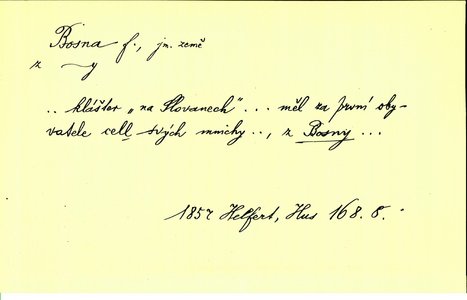 Bosna f., jm. země
z ~y
.. klášter „na Slovanech“... měl za první oby-
vatele cell svých mnichy.., z Bosny ...
1857 Helfert, Hus 168. 8.